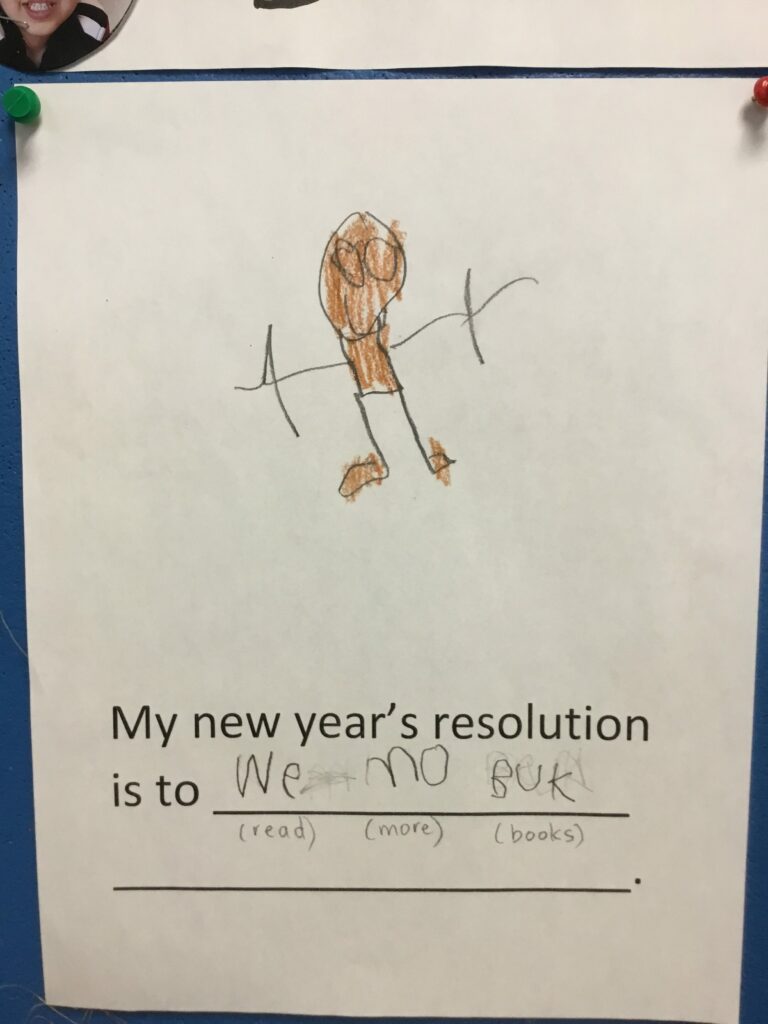 My new year's resolution
is to We mo BUK
(read) (more) (books)
.